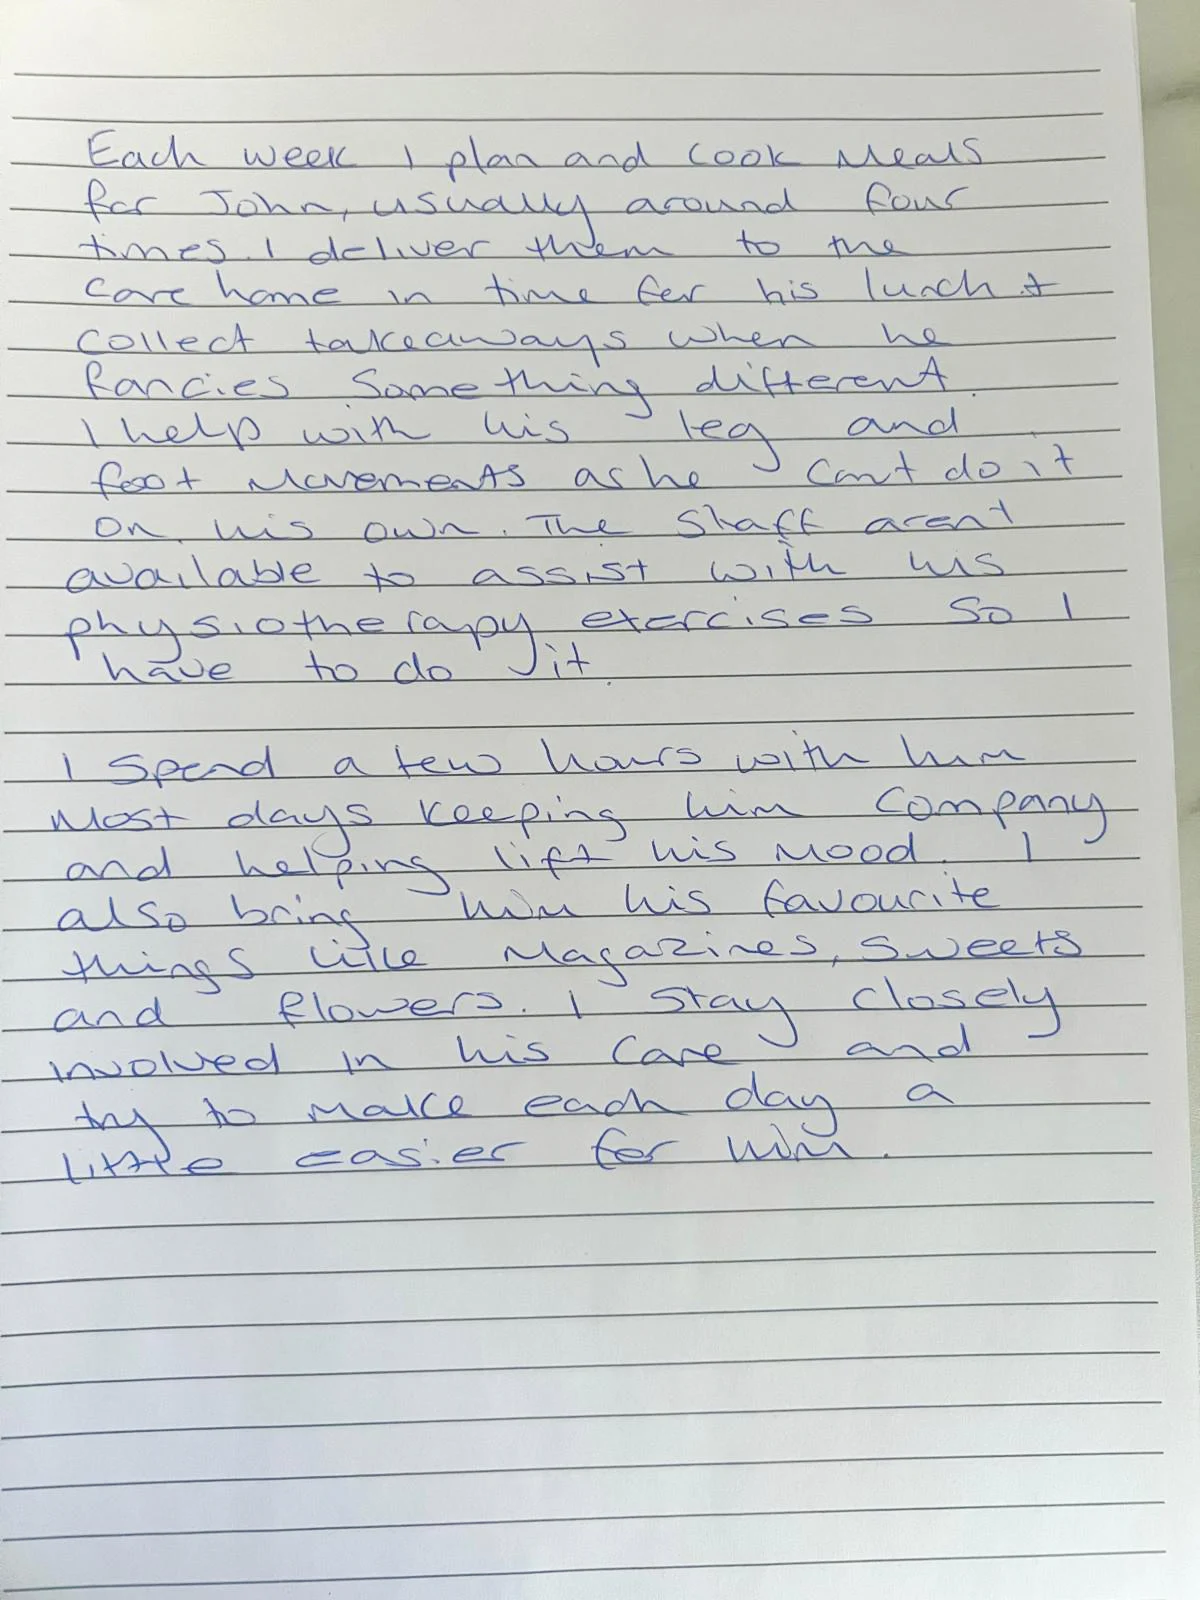 Each week I plan and cook meals
for John, usually around four
times. I deliver them to the
care home in time for his lunch +
collect takeaways when he
fancies something different.
I help with his leg and
foot movements as he can't do it
on his own. The staff arent
available to assist with his
physiotherapy exercises so I
have to do it.
I spend a few hours with him
most days keeping him company
and helping lift his mood. I
also bring him his favourite
things like magazines, sweets
and flowers. I stay closely
involved in his care and
try to make each day a
little easier for him.